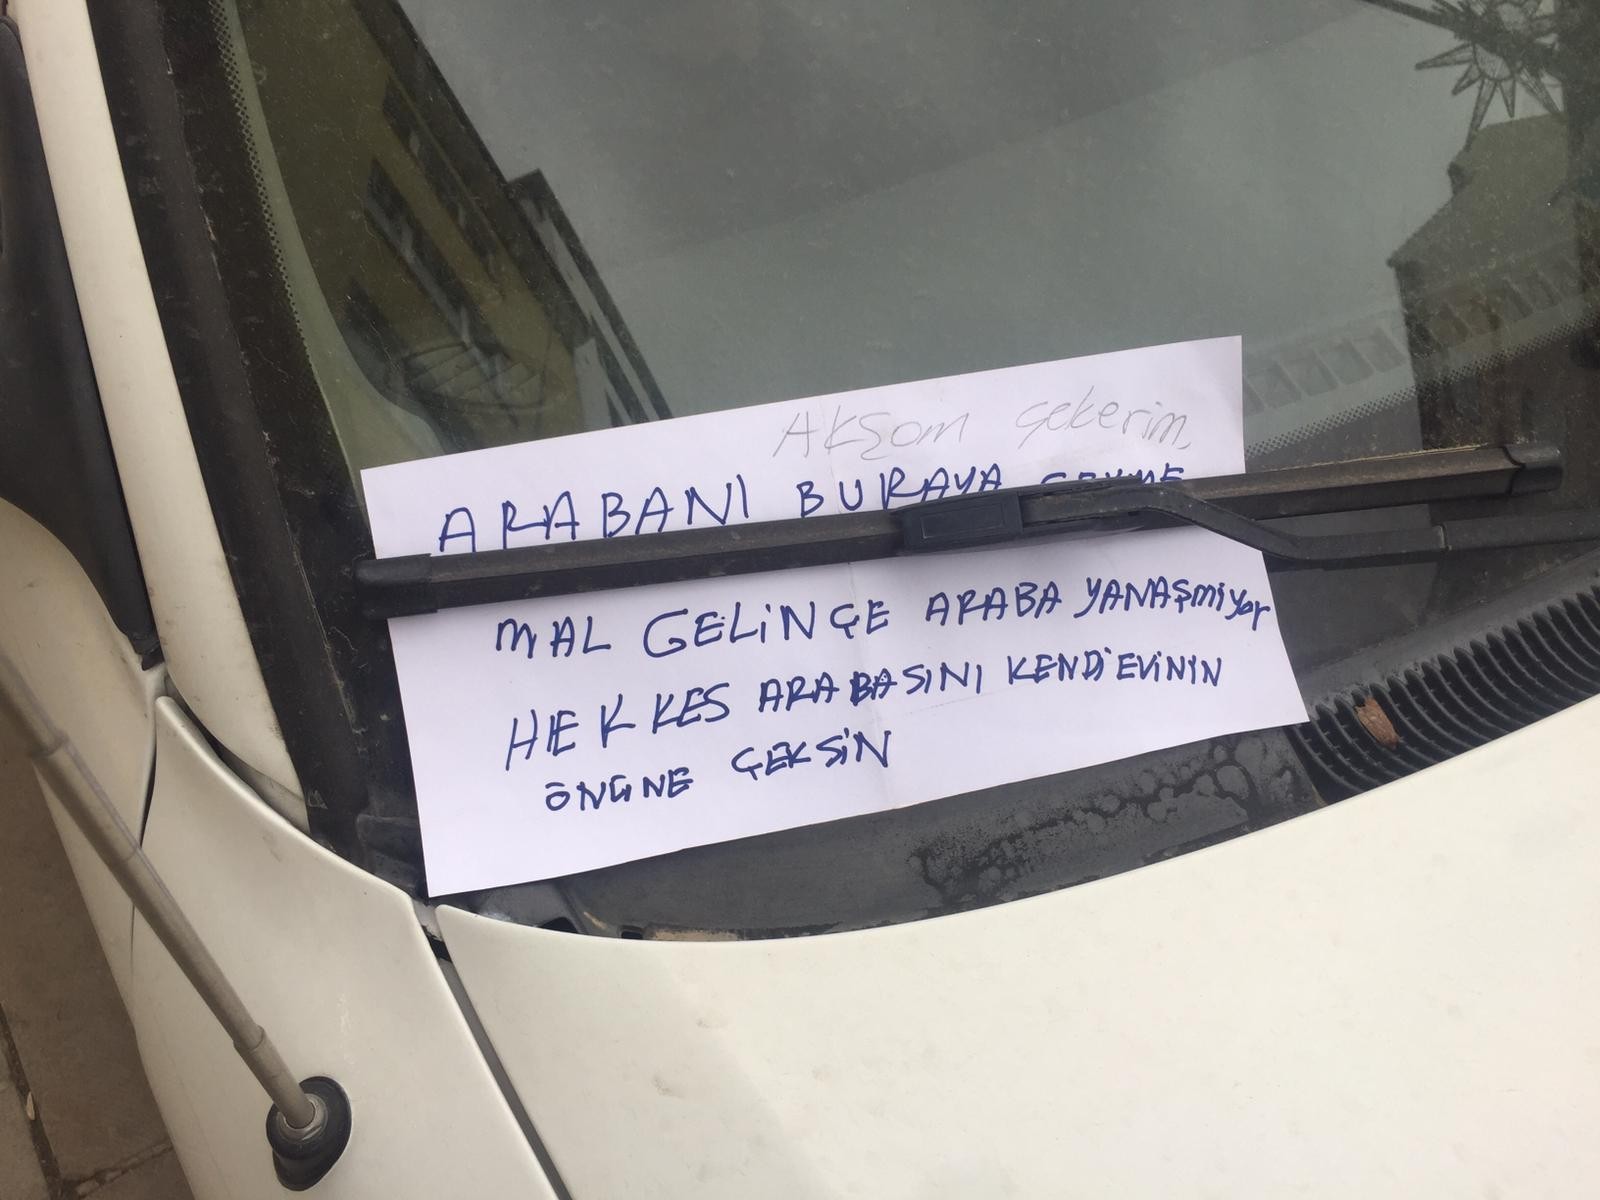 Akşam çekerim,
ARABANI BURAYA ÇEKME
MAL GELİNÇE ARABA YANAŞMiyor
HEKKES ARABASINI KENDİ EVİNİN
ÖNÜNE ÇEKSİN